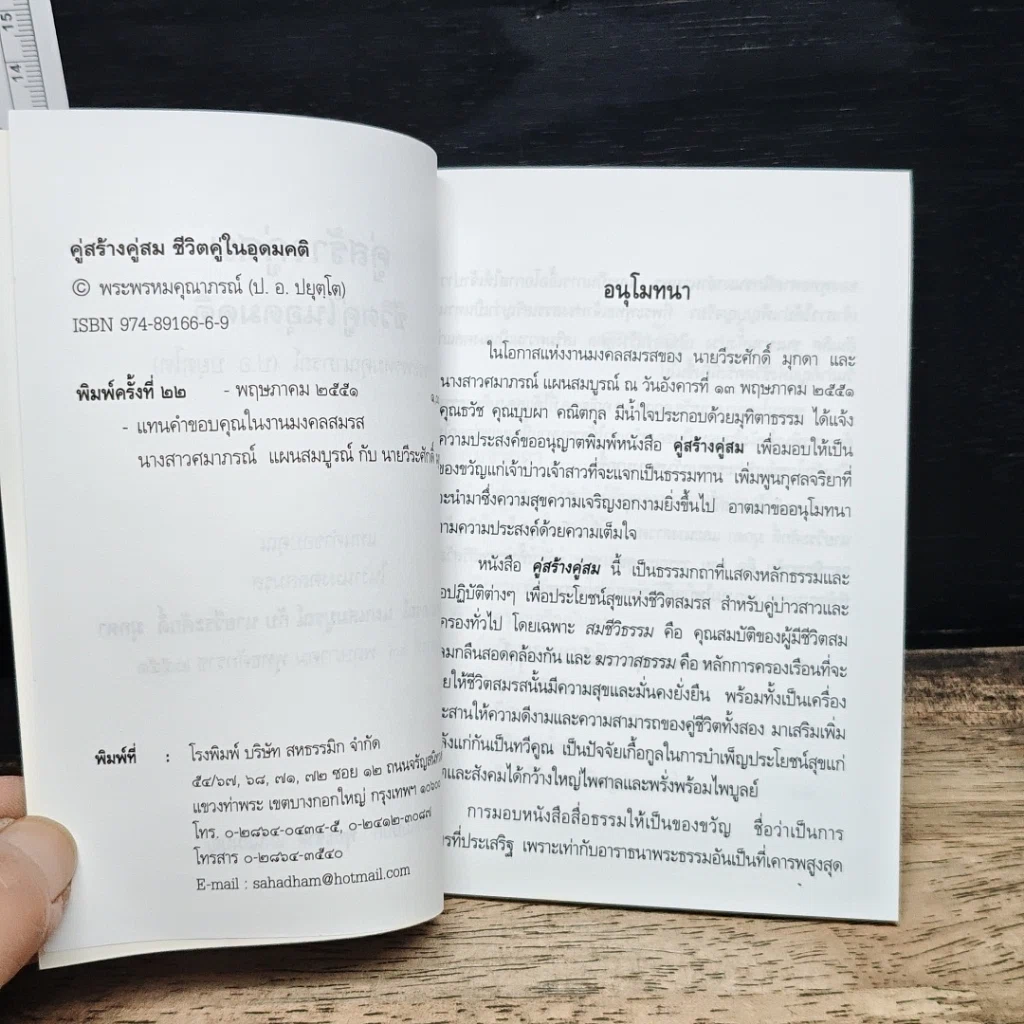 คู่สร้างคู่สม ชีวิตคู่ในอุดมคติ
© พระพรหมคุณาภรณ์ (ป. อ. ปยุตฺโต)
ISBN 974-89166-6-9
พิมพ์ครั้งที่ ๒๒ - พฤษภาคม ๒๕๕๑
- แทนคำขอบคุณในงานมงคลสมรส
นางสาวศมาภรณ์ แผนสมบูรณ์ กับ นายวีระศักดิ์
พิมพ์ที่ : โรงพิมพ์ บริษัท สหธรรมิก จำกัด
๕๔/๖๗, ๖๘, ๗๑, ๗๒ ซอย ๑๒ ถนนจรัญสนิท
แขวงท่าพระ เขตบางกอกใหญ่ กรุงเทพฯ ๑๐๖๐๐
โทร. ๐-๒๘๖๔-๐๔๓๔-๕, ๐-๒๔๑๒-๓๐๘๗
โทรสาร ๐-๒๘๖๔-๓๕๔๐
E-mail : sahadham@hotmail.com
อนุโมทนา
ในโอกาสแห่งงานมงคลสมรสของ นายวีระศักดิ์ มุกดา และ
นางสาวศมาภรณ์ แผนสมบูรณ์ ณ วันอังคารที่ ๑๓ พฤษภาคม ๒๕๕๑
คุณธวัช คุณบุบผา คณิตกุล มีน้ำใจประกอบด้วยมุทิตาธรรม ได้แจ้ง
ความประสงค์ขออนุญาตพิมพ์หนังสือ คู่สร้างคู่สม เพื่อมอบให้เป็น
ของขวัญแก่เจ้าบ่าวเจ้าสาวที่จะแจกเป็นธรรมทาน เพิ่มพูนกุศลจริยาที่
จะนำมาซึ่งความสุขความเจริญงอกงามยิ่งขึ้นไป อาตมาขออนุโมทนา
ามความประสงค์ด้วยความเต็มใจ
หนังสือ คู่สร้างคู่สม นี้ เป็นธรรมกถาที่แสดงหลักธรรมและ
อปฏิบัติต่างๆ เพื่อประโยชน์สุขแห่งชีวิตสมรส สำหรับคู่บ่าวสาวและ
ครองทั่วไป โดยเฉพาะ สมชีวิธรรม คือ คุณสมบัติของผู้มีชีวิตสม
ลมกลืนสอดคล้องกัน และ ฆราวาสธรรม คือ หลักการครองเรือนที่จะ
ยให้ชีวิตสมรสนั้นมีความสุขและมั่นคงยั่งยืน พร้อมทั้งเป็นเครื่อง
ะสานให้ความดีงามและความสามารถของคู่ชีวิตทั้งสอง มาเสริมเพิ่ม
ลังแก่กันเป็นทวีคูณ เป็นปัจจัยเกื้อกูลในการบำเพ็ญประโยชน์สุขแก่
และสังคมได้กว้างใหญ่ไพศาลและพรั่งพร้อมไพบูลย์
การมอบหนังสือสื่อธรรมให้เป็นของขวัญ ชื่อว่าเป็นการ
รที่ประเสริฐ เพราะเท่ากับอาราธนาพระธรรมอันเป็นที่เคารพสูงสุด
15
14